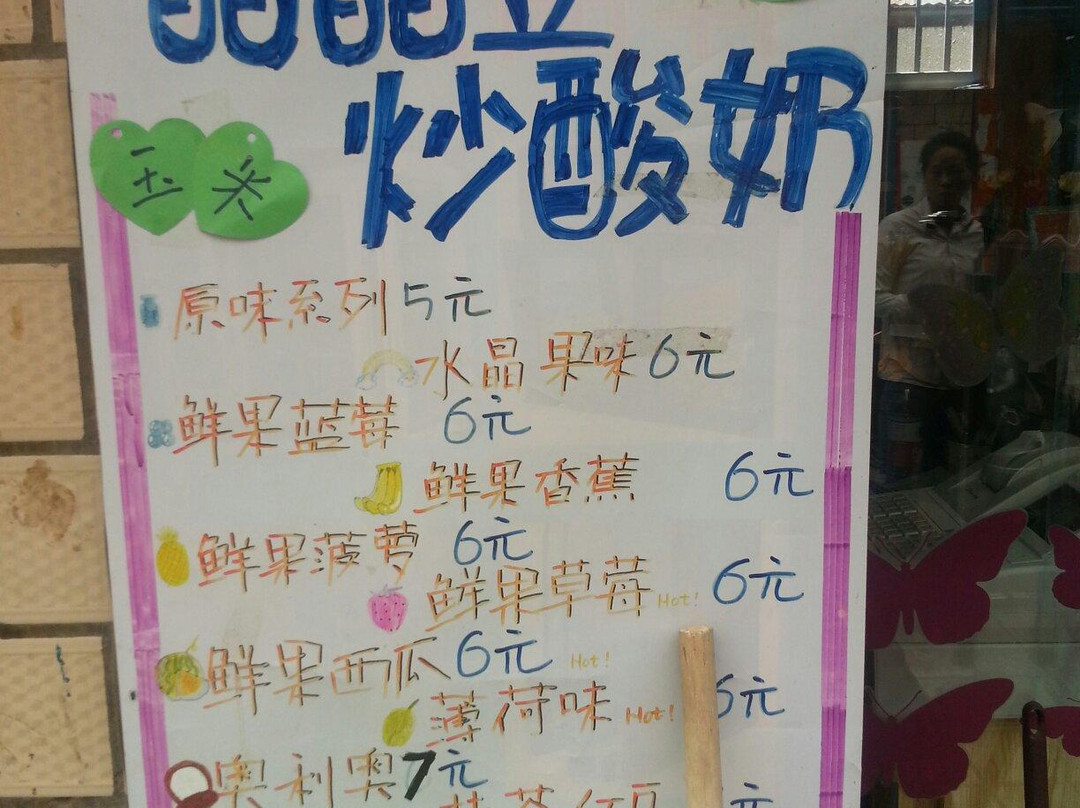 晶晶立
炒酸奶
玉米
原味系列 5元
水晶果味 6元
鲜果蓝莓 6元
鲜果香蕉 6元
鲜果菠萝 6元
鲜果草莓 Hot! 6元
鲜果西瓜 6元 Hot!
薄荷味 Hot! 6元
奥利奥 7元
元